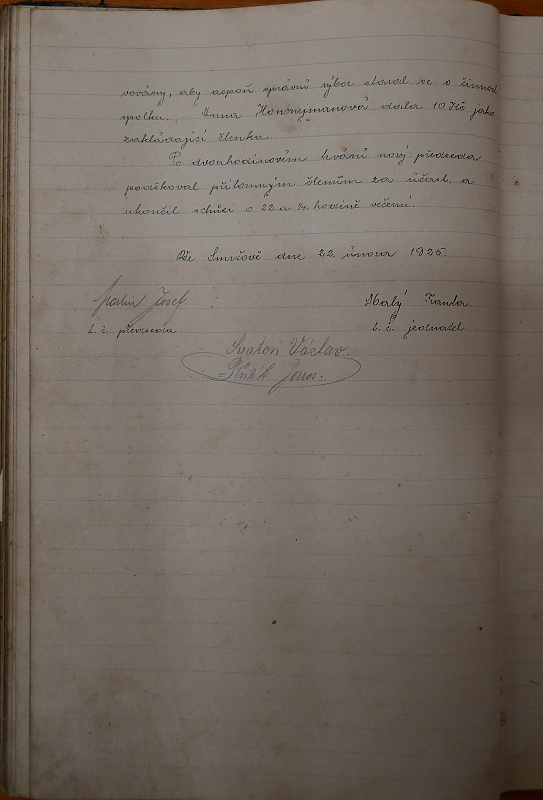 vovány, aby aspoň správní výbor staral se o činnost
spolku. Anna Honneymanová dala 10 Kč jako
zakládající členka.
Po dvouhodinovém trvání nový předseda
poděkoval přítomným členům za účast a
ukončil schůzi o 22. a ¼ hodině večerní.
Ve Smrčově dne 22. února 1925.
Martin Josef.
t. č. předseda.
Malý Franta.
t. č. jednatel.
Svatoň Václav.
Jaros.